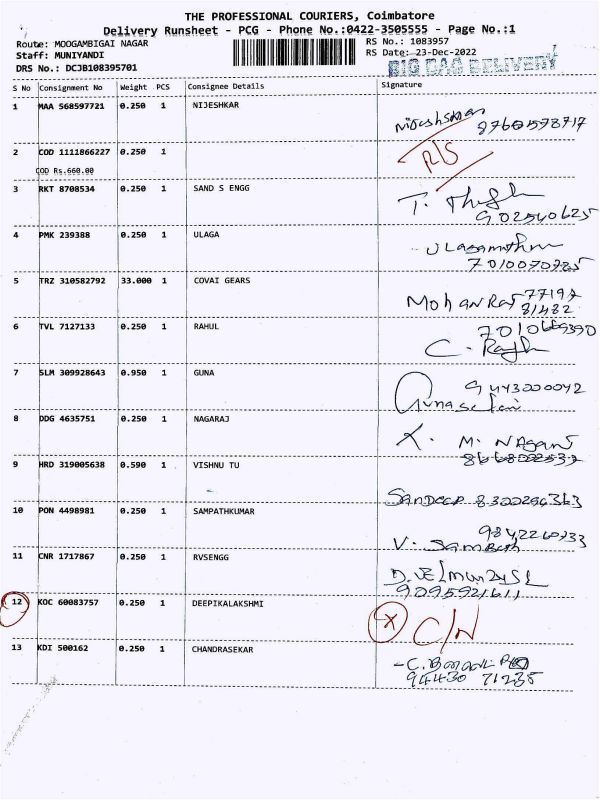 THE PROFESSIONAL COURIERS, Coimbatore
Delivery Runsheet - PCG - Phone No.:0422-3505555 - Page No.:1
Route: MOOGAMBIGAI NAGAR
Staff: MUNIYANDI
DRS No.: DCJB108395701
RS No.: 1083957
RS Date: 23-Dec-2022
BIG BAG DELIVERY
S No Consignment No Weight PCS Consignee Details Signature
1 MAA 568597721 0.250 1 NIJESHKAR
2 COD 1111866227 0.250 1 R/S
COD Rs.660.00
3 RKT 8708534 0.250 1 SAND S ENGG T.
902540625
4 PMK 239388 0.250 1 ULAGA
7010070785
5 TRZ 310582792 33.000 1 COVAI GEARS MohanRaj 77197
81482
6 TVL 7127133 0.250 1 RAHUL
C.
7 SLM 309928643 0.950 1 GUNA 9443000042
8 DDG 4635751 0.250 1 NAGARAJ
9 HRD 319005638 0.590 1 VISHNU TU SANDEEP 8300294363
10 PON 4498981 0.250 1 SAMPATHKUMAR 9842260733
V.
11 CNR 1717867 0.250 1 RVSENGG
9095921611
12 KOC 60083757 0.250 1 DEEPIKALAKSHMI X C/N
13 KDI 500162 0.250 1 CHANDRASEKAR
94430 71235